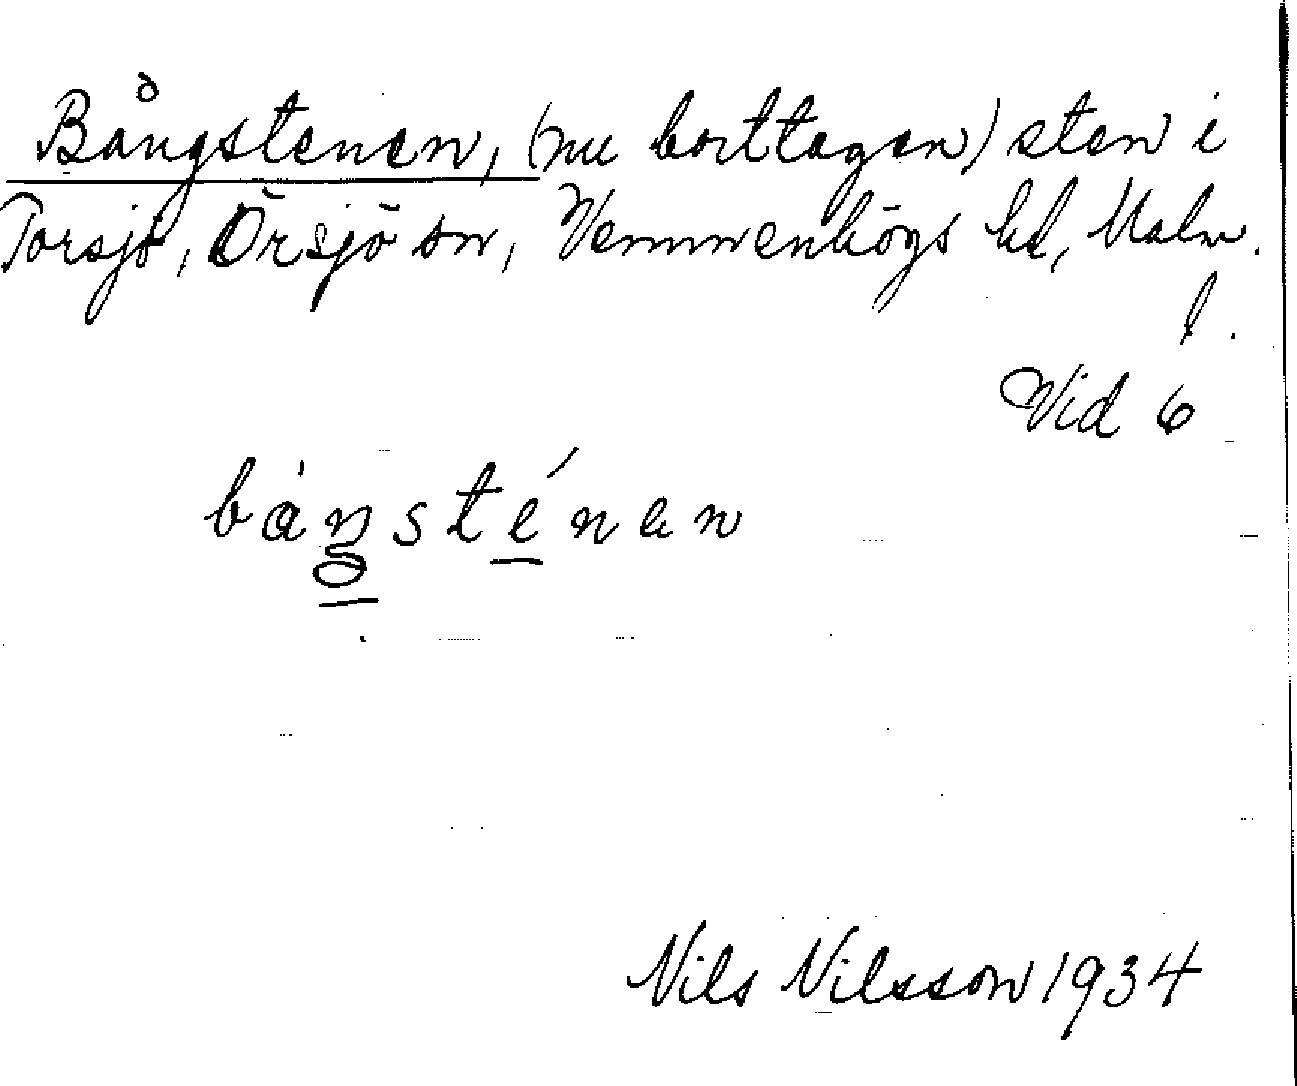 Bångstenen, (nu borttagen) sten i
Torsjö, Örsjö sn, Vemmenhögs hd, Malm.
l.
Vid 6
bàŋsténen
Nils Nilsson 1934